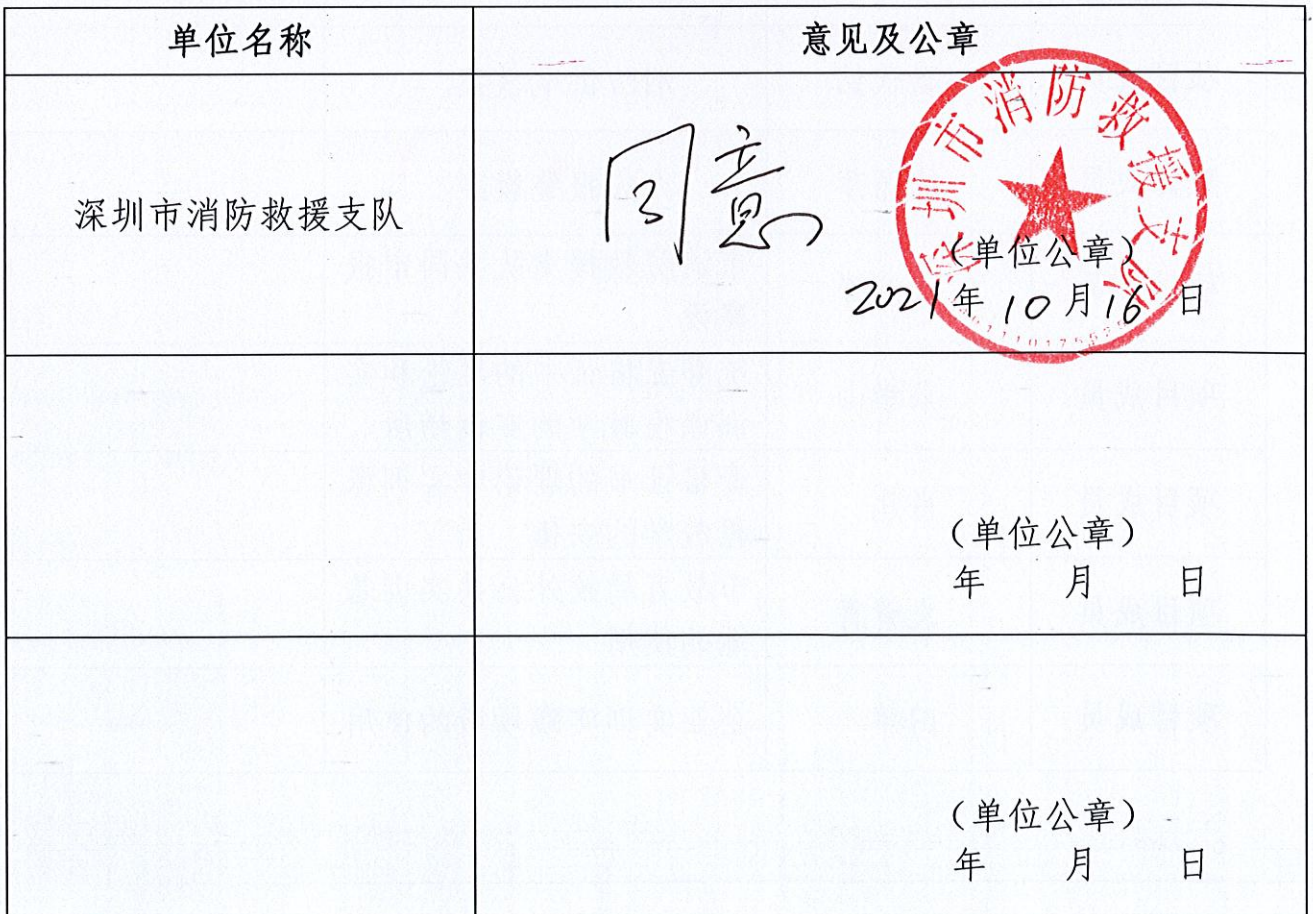 单位名称
意见及公章
深圳市消防救援支队
同意
深圳市消防救援支队
(单位公章)
2021年10月16日
(单位公章)
年 月 日
(单位公章)
年 月 日